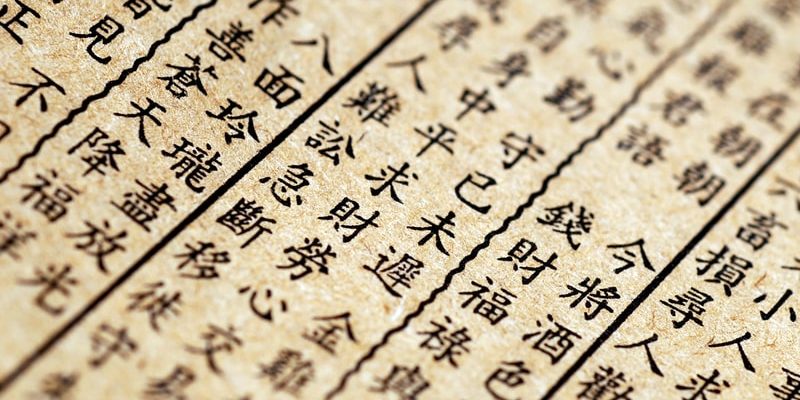 小人求
畜損尋人勸
在朝朝今將酒色
報君語錢財福祿與
心勤守己未遲金雞
自身中平求財勞心交易
尋人難訟急斷移徙守
八面玲瓏盡放光
作善蒼天降福祥
見不
正